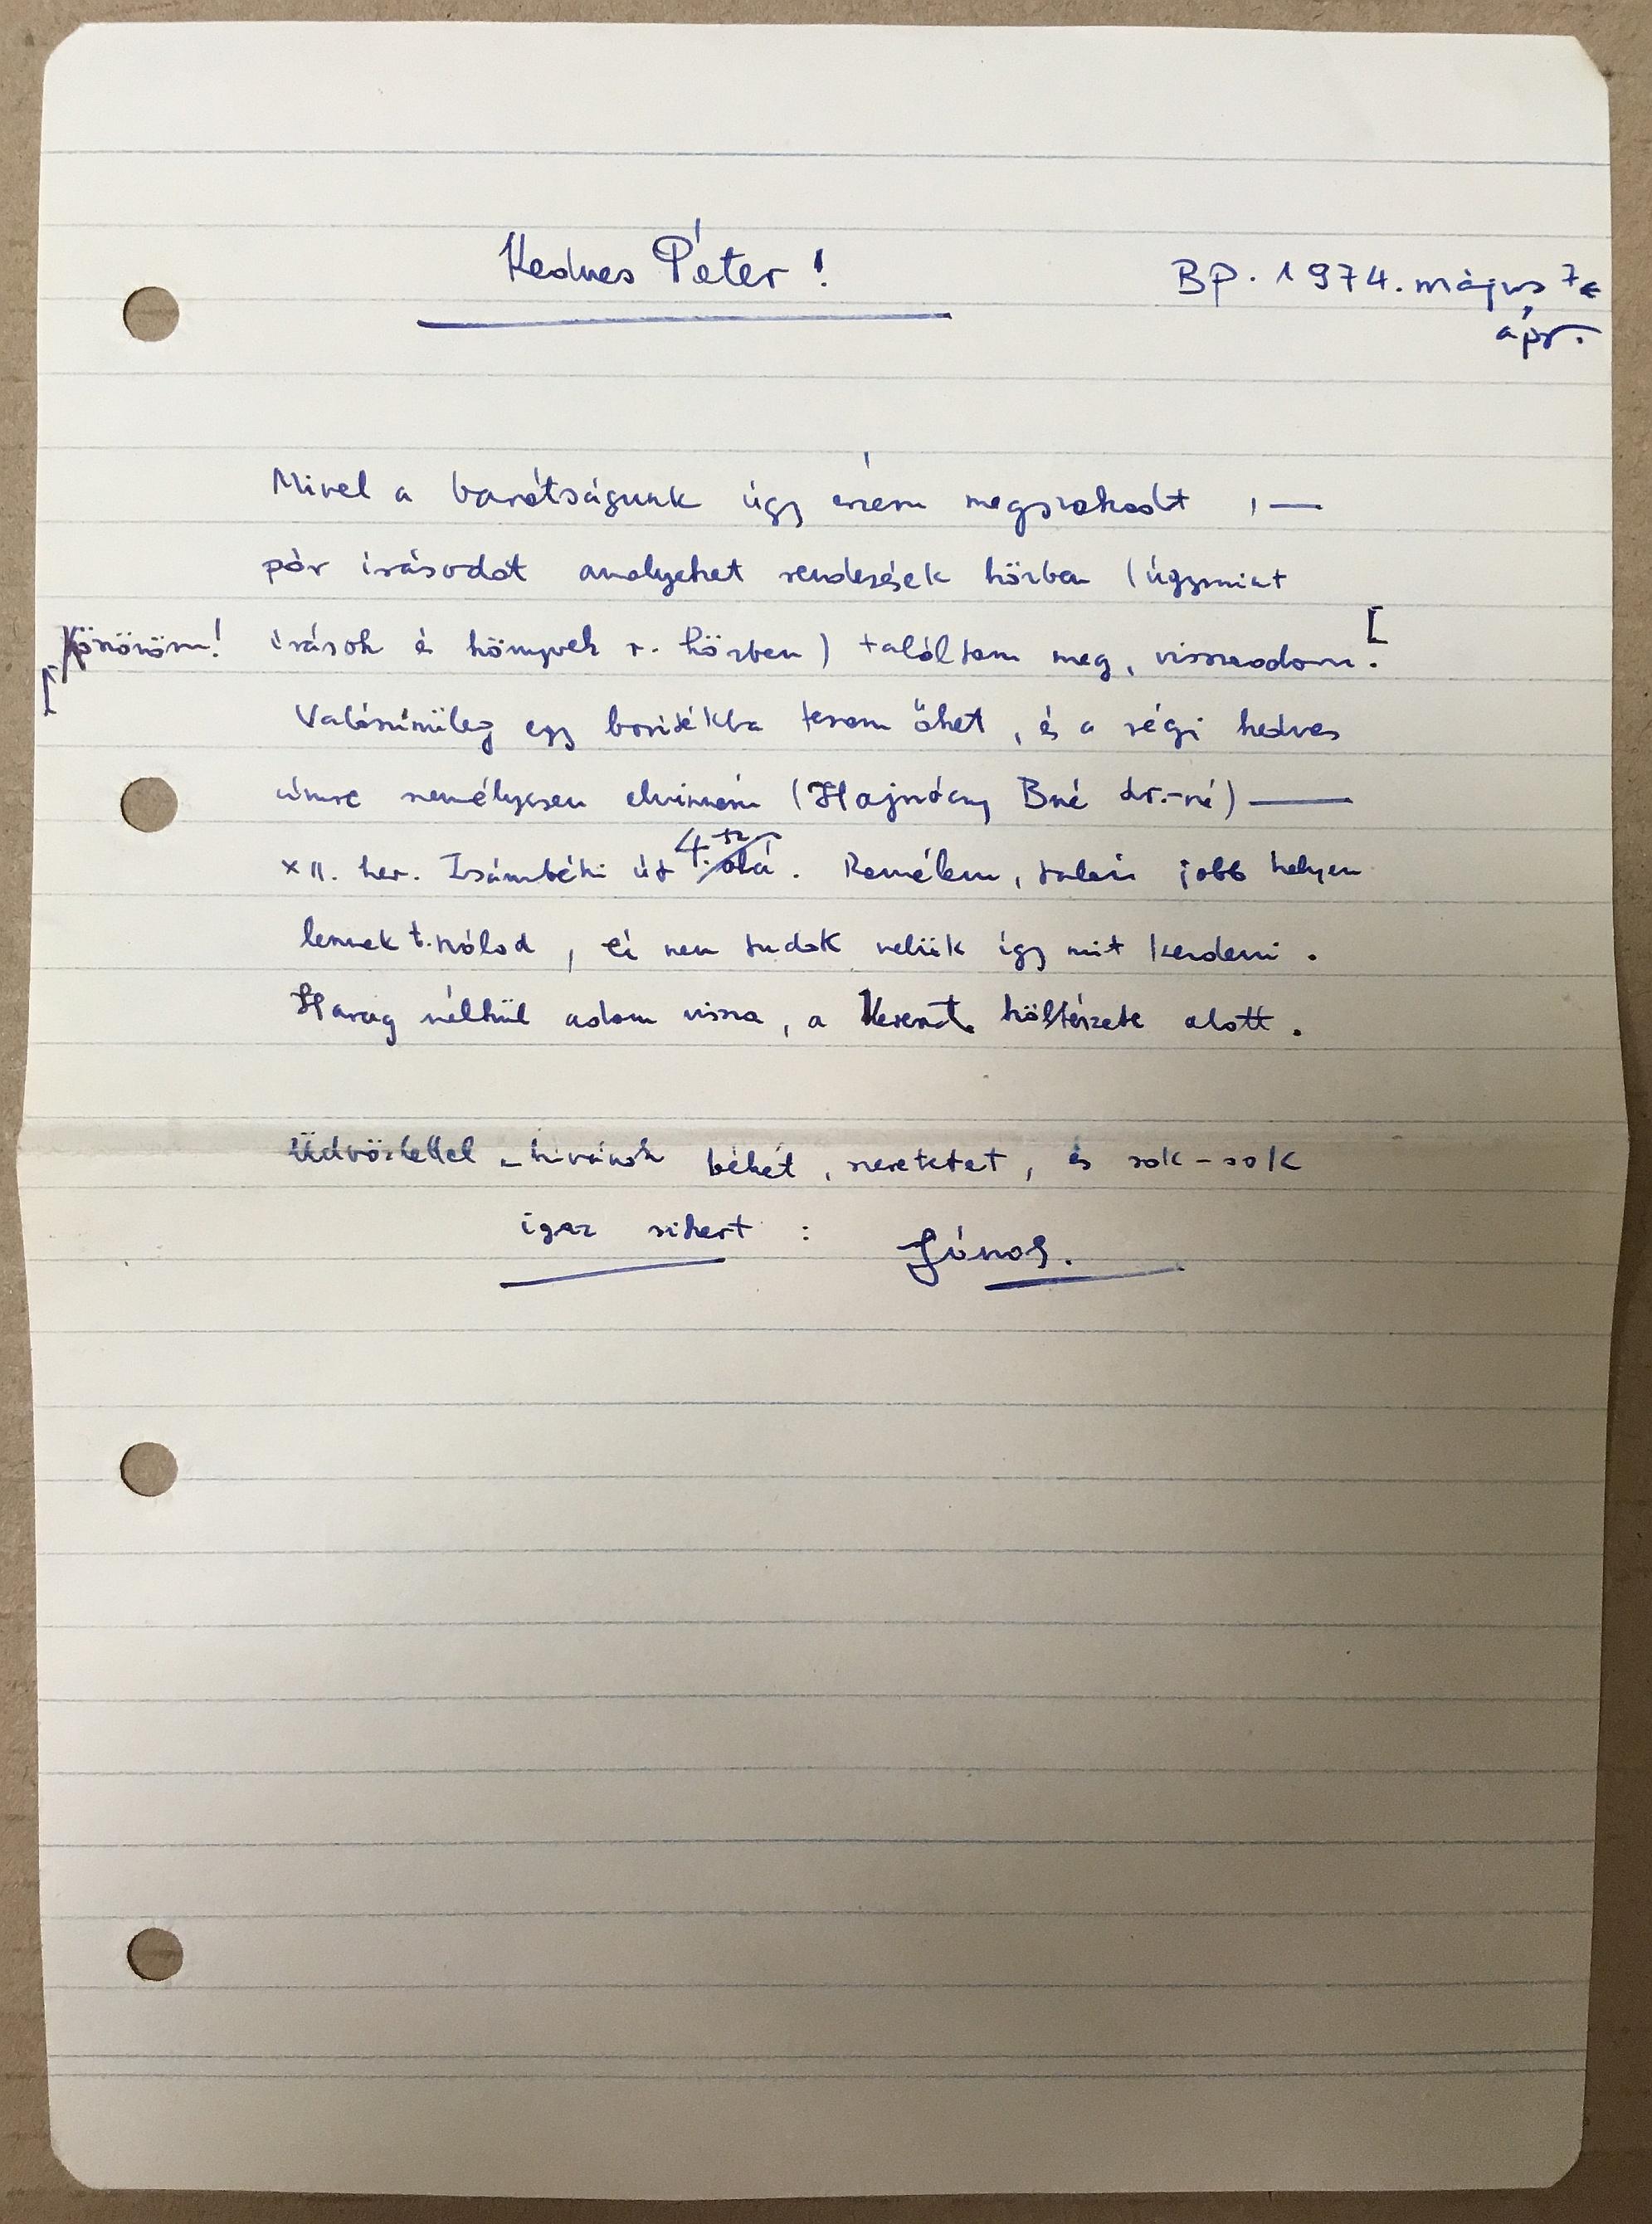 Kedves Péter!
BP. 1974. május 7
ápr.
Mivel a barátságunk úgy érzem megszakadt, —
pár írásodat amelyeket rendezések közben (úgymint
írások és könyvek r. közben) találtam meg, visszaadom. [
Köszönöm! [
Valószínűleg egy borítékba teszem őket, és a régi kedves
címre személyesen elvinném (Hajnóczy Bné dr.-né) —
XII. ker. Zsámbéki út 4. sz. alá. Remélem, talán jobb helyen
lennek t. nálad, én nem tudok velük így mit kezdeni.
Harag nélkül adom vissza, a Kereszt költészete alatt.
Üdvözlettel – kívánok békét, szeretetet, és sok-sok
igaz sikert: János.